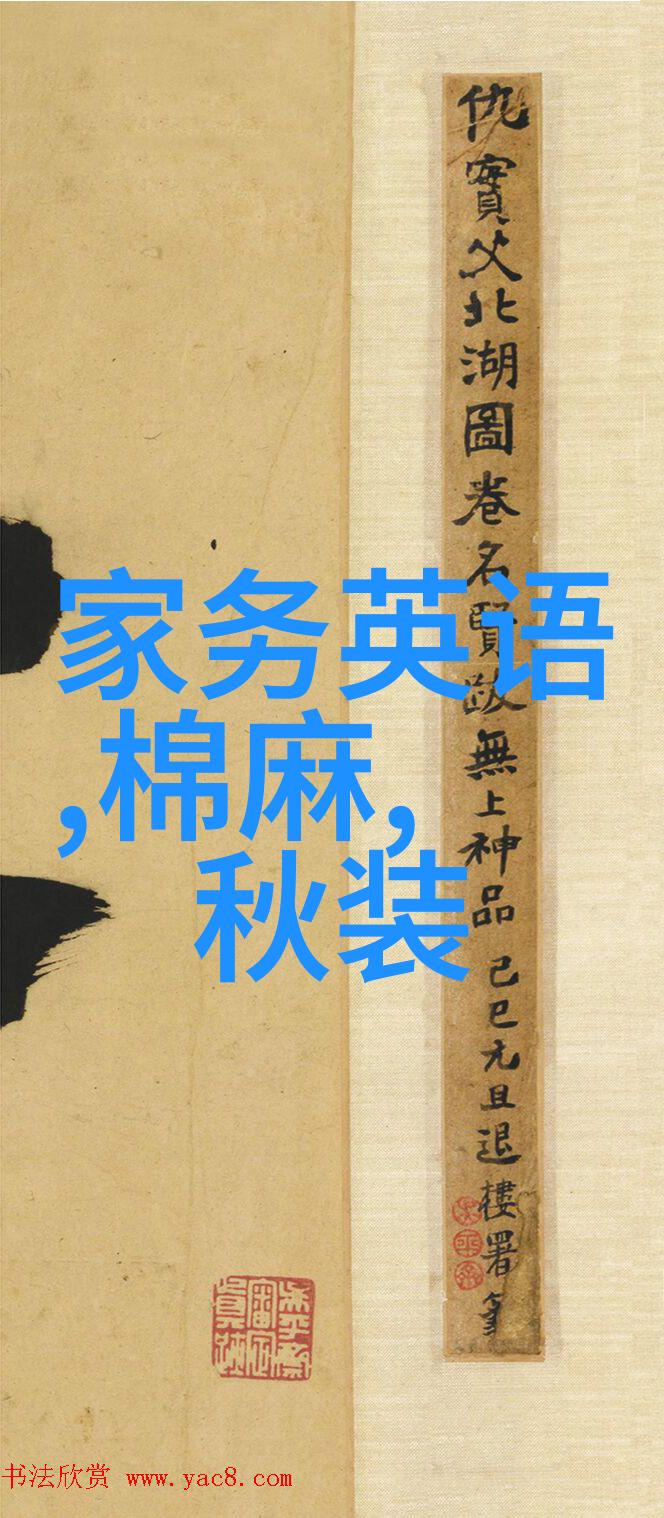 仇實父北湖圖卷名賢跋無上神品 己巳元旦退樓署首
家务英语
,棉麻,
秋装
书法欣赏 www.yac8.com